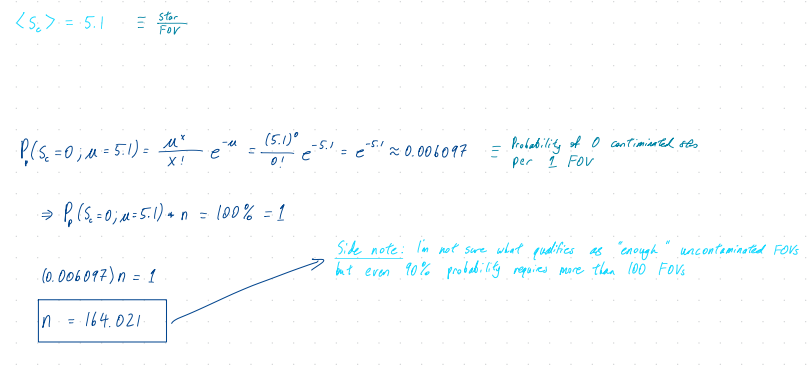 ⟨S_c⟩ = 5.1 ≡ star/FOV
P_p(S_c=0; μ=5.1) = μ^x/x! e^-μ = (5.1)^0/0! e^-5.1 = e^-5.1 ≈ 0.006097 ≡ Probability of 0 contiminated
per 1 FOV
⇒ P_p(S_c=0; μ=5.1) * n = 100% = 1
Side note: I'm not sure what qualifies as "enough" uncontaminated FOVs
but even 90% probability requires more than 100 FOVs
(0.006097)n = 1
n = 164.021